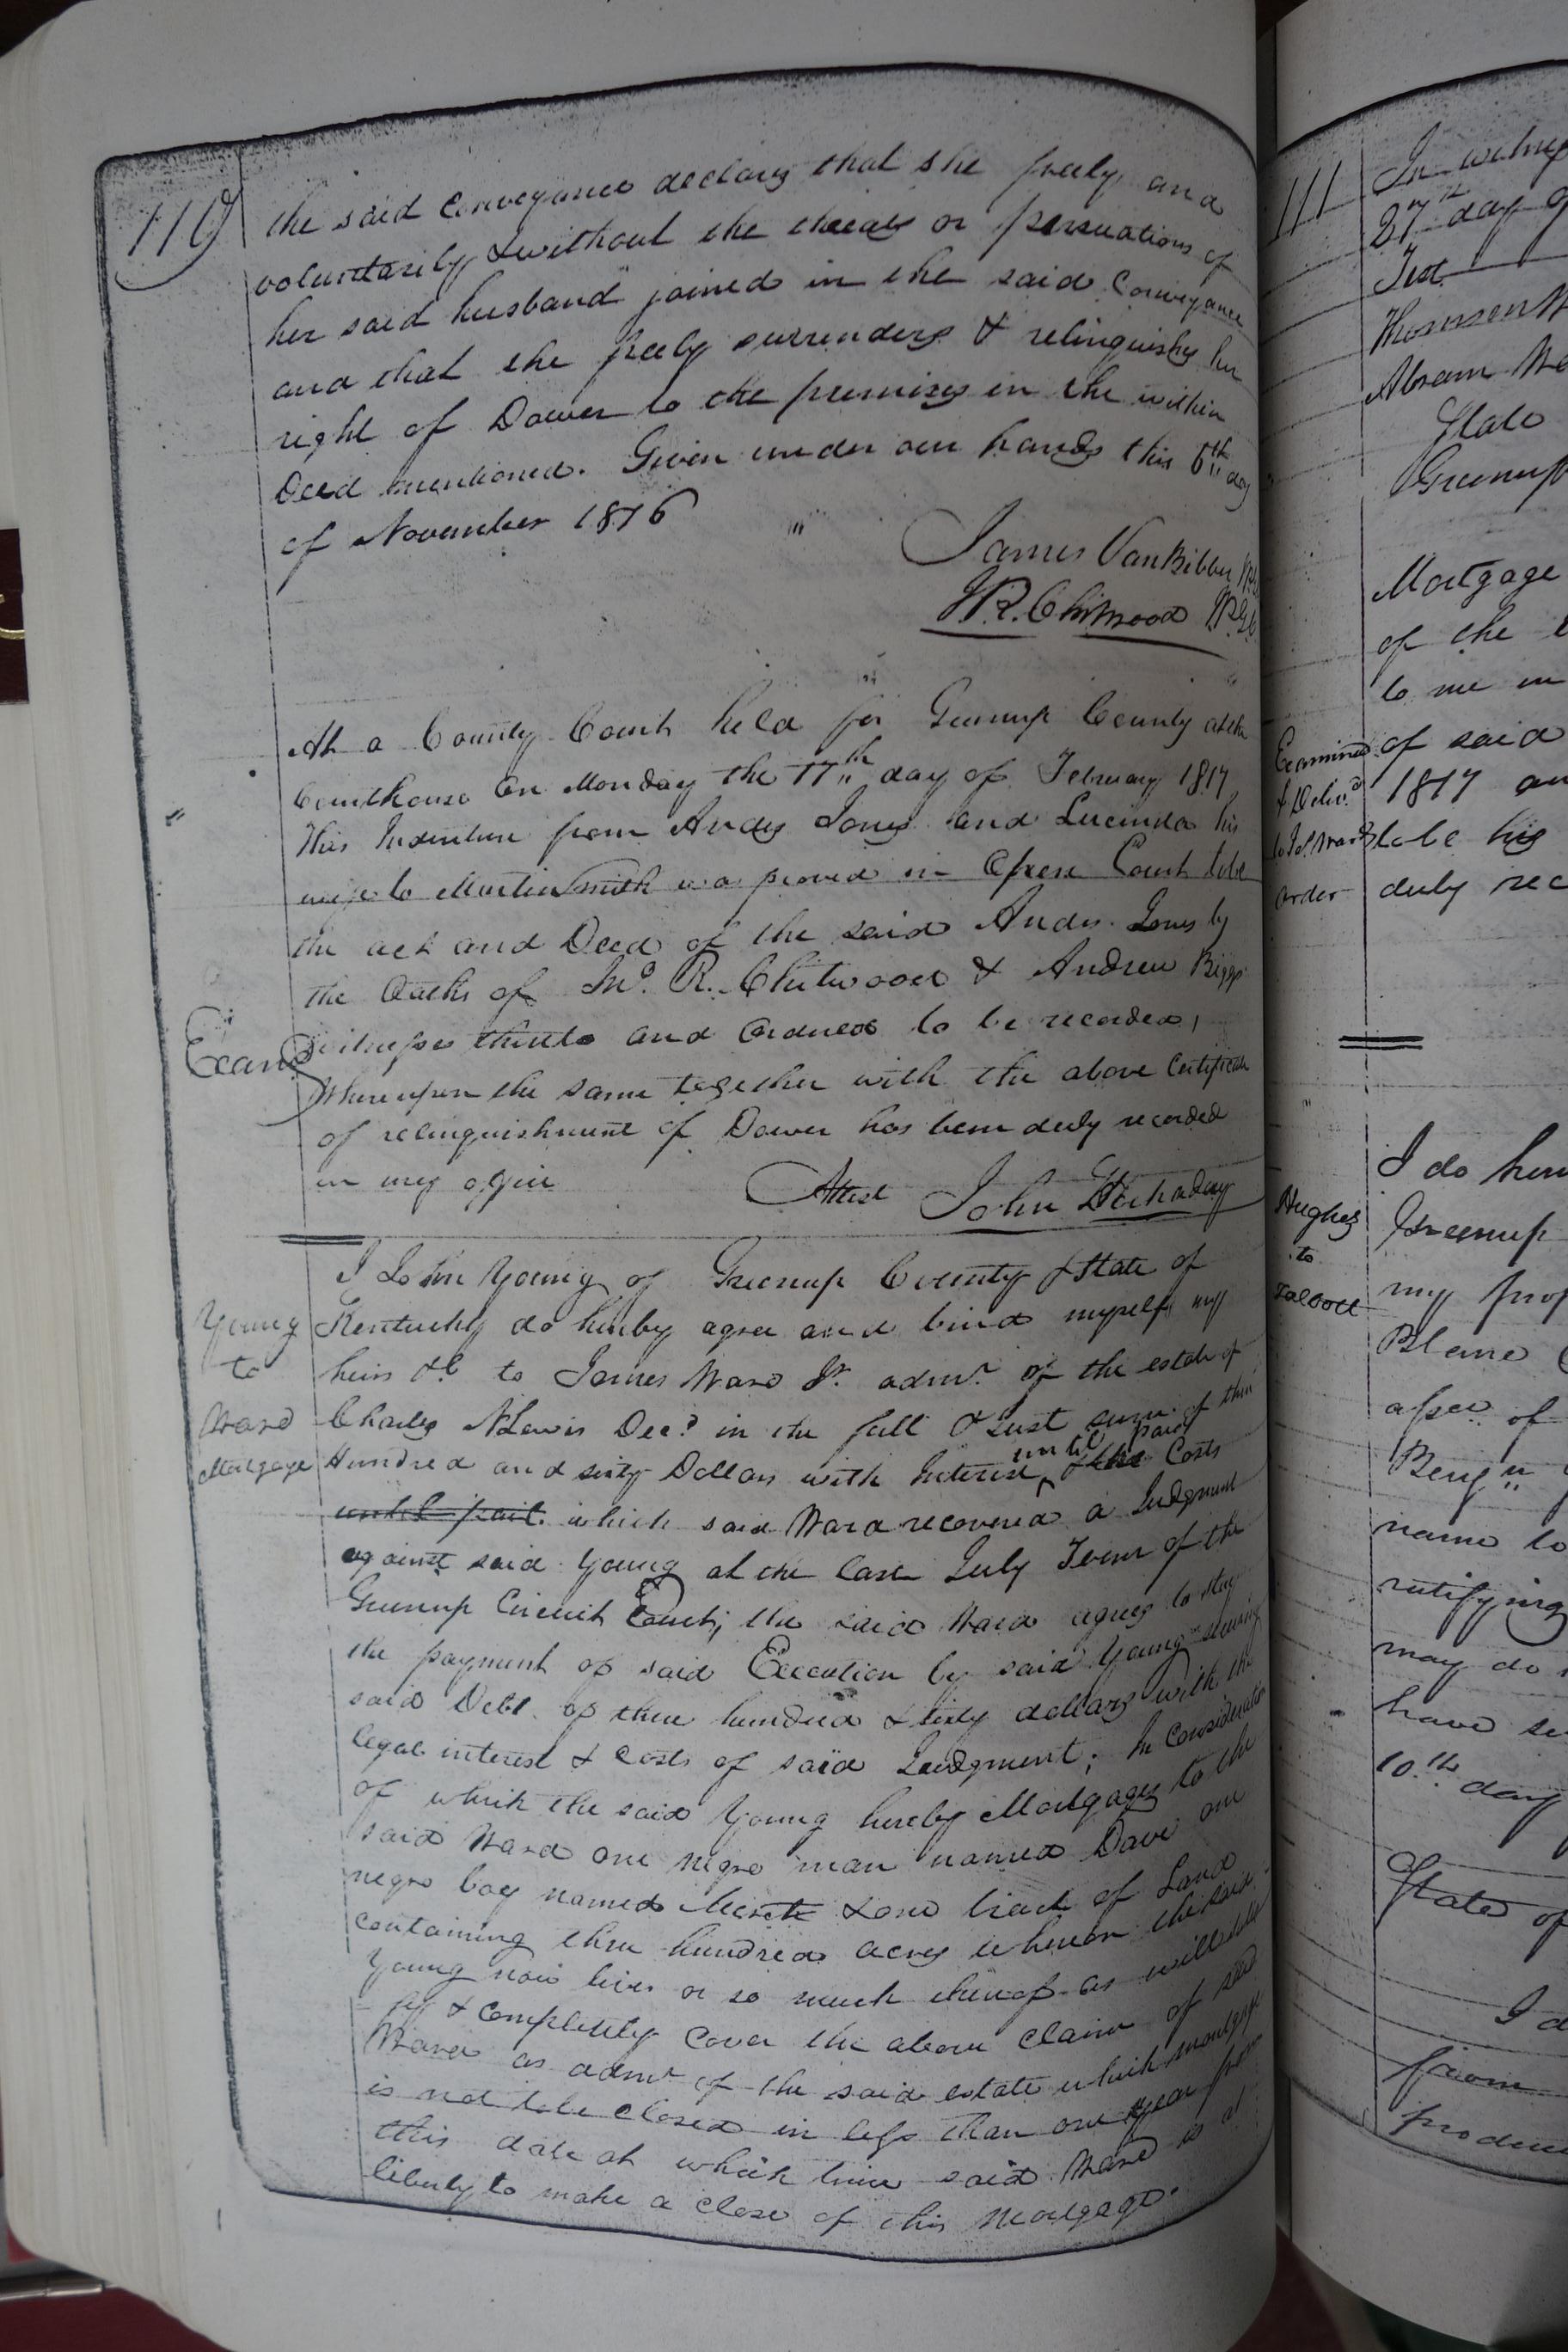 110
the said conveyance declares that she freely and
voluntarily & without the threats or persuations of
her said husband joined in the said conveyance
and that she freely surrenders & relinquishes her
right of Dower to the premises in the within
Deed mentioned. Given under our hands this 6th day
of November 1816
James VanBibber
J.R. Chitwood
At a County Court held for Greenup County at the
Courthouse on Monday the 17th day of February 1817
This Indenture from Andy Jones and Lucinda his
wife to Martin Smith was proved in Open Court to be
the act and Deed of the said Andw. Jones by
the Oaths of Jno. R. Chitwood & Andrew Biggs
witnesses thereto and ordered to be recorded,
Examd
Whereupon the same together with the above Certificate
of relinquishment of Dower has been duly recorded
in my office
Attest John
Young
to
Ward
Mortgage
I John Young of Greenup County & State of
Kentucky do hereby agree and bind myself my
heirs &c to James Ward Jr. admr. of the estate of
Charles N Lewis Decd. in the full & just sum of three
Hundred and sixty Dollars with Interest until paid & the Costs
until paid. which said Ward recovered a Judgment
against said Young at the last July Term of the
Greenup Circuit Court; the said Ward agrees to stay
the payment of said Execution by said Young
said Debt of three hundred & sixty dollars with the
legal interest & Costs of said Judgment; In Consideration
of which the said Young hereby Mortgages to the
said Ward one negro man named Dave one
negro boy named & one tract of Land
containing three hundred acres whereon the said
Young now lives or so much thereof as will
& completely cover the above claim of said
Ward as admr of the said estate which mortgage
is not to be closed in less than one year from
this date at which time said Ward is at
liberty to make a close of this Mortgage.
111
In witness
27th day of
Test
Thomson
Abram
State
Greenup
Mortgage
of the
to me in
Examined
& Delivd.
to Js. Ward
order
of said
1817 an
to be his
duly rec
Hughes
to
I do
Greenup
my prop
Blane
assee of
Benjn
name to
ratifying
may do
have se
10th day
State of
I d
from
produce